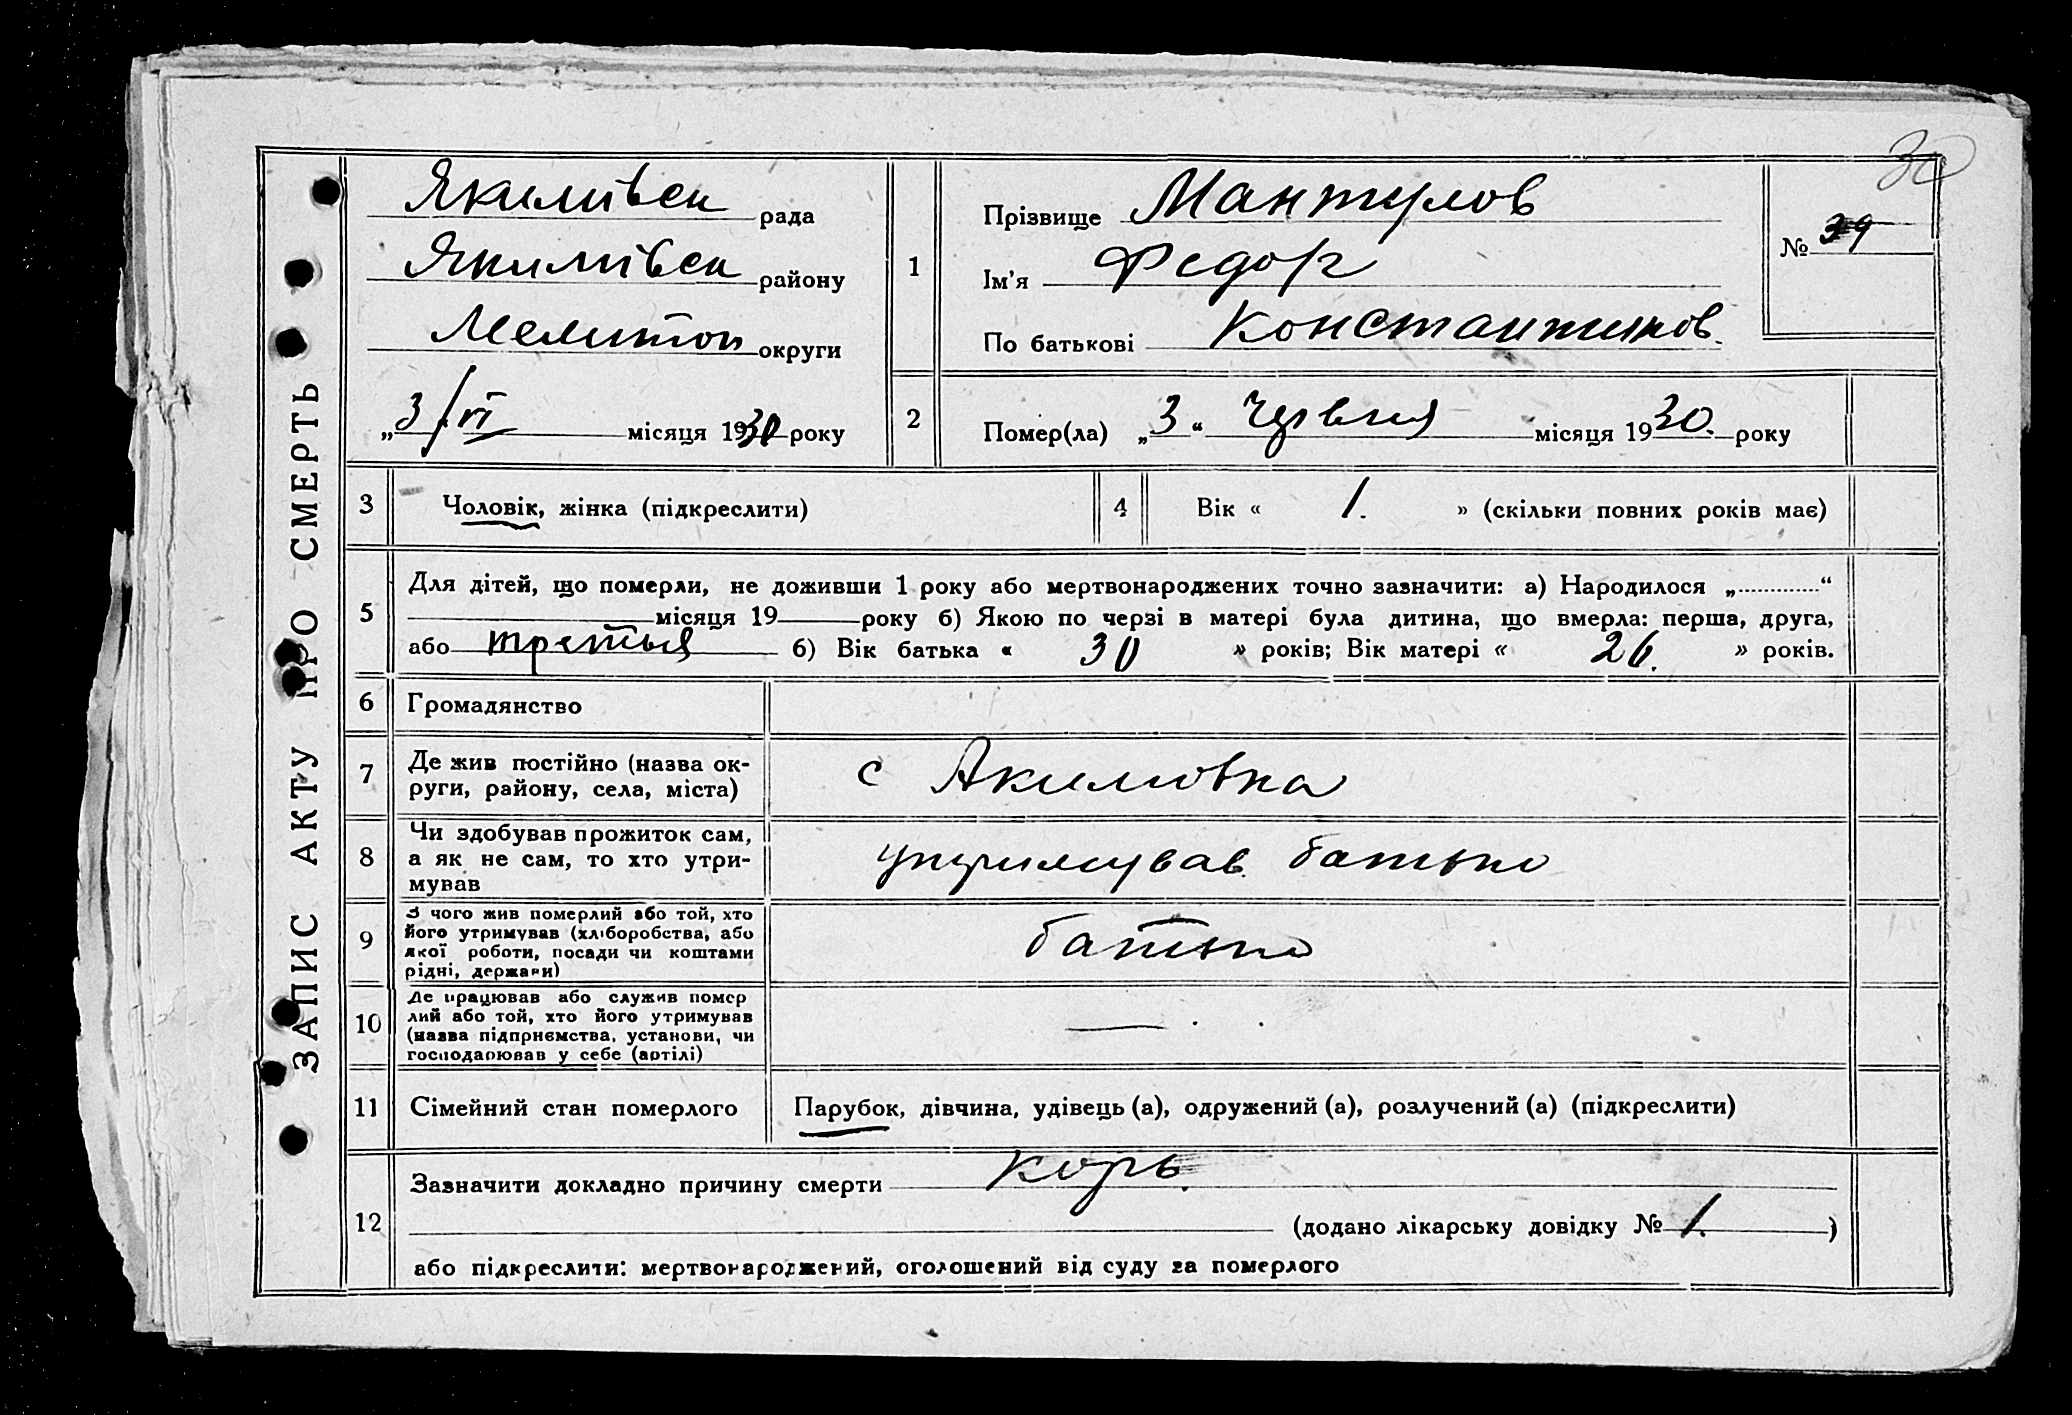 30
ЗАПИС АКТУ ПРО СМЕРТЬ
Якимівск рада
Якимівск району
Мелитоп округи
„3/VI місяця 1930 року
1
Прізвище Мантулов
Ім'я Федор
По батькові Константинов.
№ 39
2
Помер(ла) „3“ Червня місяця 1930. року
3
Чоловік, жінка (підкреслити)
4
Вік « 1. » (скільки повних років має)
5
Для дітей, що померли, не доживши 1 року або мертвонароджених точно зазначити: а) Народилося „..............“
місяця 19 року б) Якою по черзі в матері була дитина, що вмерла: перша, друга,
або третья б) Вік батька « 30 » років; Вік матері « 26. » років.
6
Громадянство
7
Де жив постійно (назва ок-
руги, району, села, міста)
с Акимовка
8
Чи здобував прожиток сам,
а як не сам, то хто утри-
мував
утримував батько
9
З чого жив померлий або той, хто
його утримував (хліборобства, або
якої роботи, посади чи коштами
рідні, держави)
батько
10
Де працював або служив помер
лий або той, хто його утримував
(назва підприємства, установи, чи
господарював у себе (артілі)
—
11
Сімейний стан померлого
Парубок, дівчина, удівець (а), одружений (а), розлучений (а) (підкреслити)
12
Зазначити докладно причину смерти корь.
(додано лікарську довідку № 1. )
або підкреслити: мертвонароджений, оголошений від суду за померлого